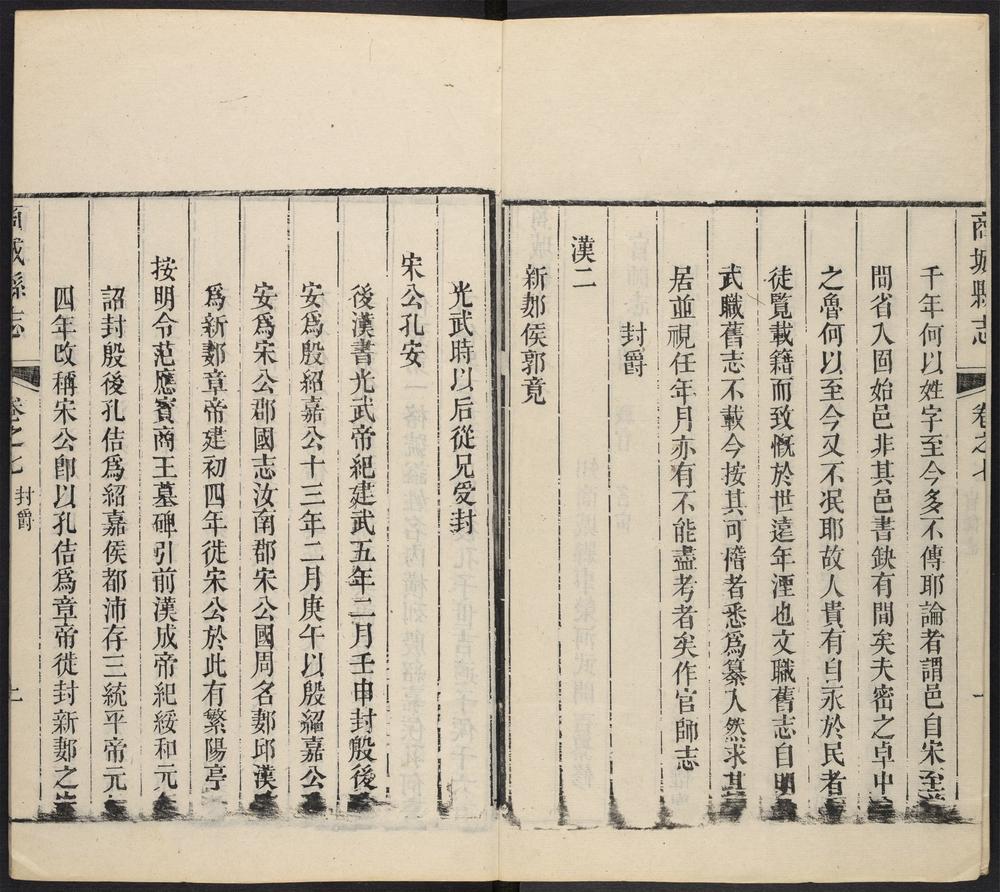 商城縣志
卷之七
一
千年何以姓字至今多不傳耶論者謂邑自宋至
間省入固始邑非其邑書缺有間矣夫密之卓中
之魯何以至今又不泯耶故人貴有自永於民者
徒覽載籍而致慨於世遠年湮也文職舊志自明
武職舊志不載今按其可稽者悉爲纂入然求其
居並視任年月亦有不能盡考者矣作官師志
封爵
漢二
新郪侯郭竟
光武時以后從兄受封
宋公孔安
後漢書光武帝紀建武五年二月壬申封殷後
安爲殷紹嘉公十三年二月庚午以殷紹嘉公
安爲宋公郡國志汝南郡宋公國周名郪邱漢
爲新郪章帝建初四年徙宋公於此有繁陽亭
按明令范應賓商王墓碑引前漢成帝紀綏和元
詔封殷後孔佶爲紹嘉侯都沛存三統平帝元
四年改稱宋公卽以孔佶爲章帝徙封新郪之
商城縣志
卷之七
封爵